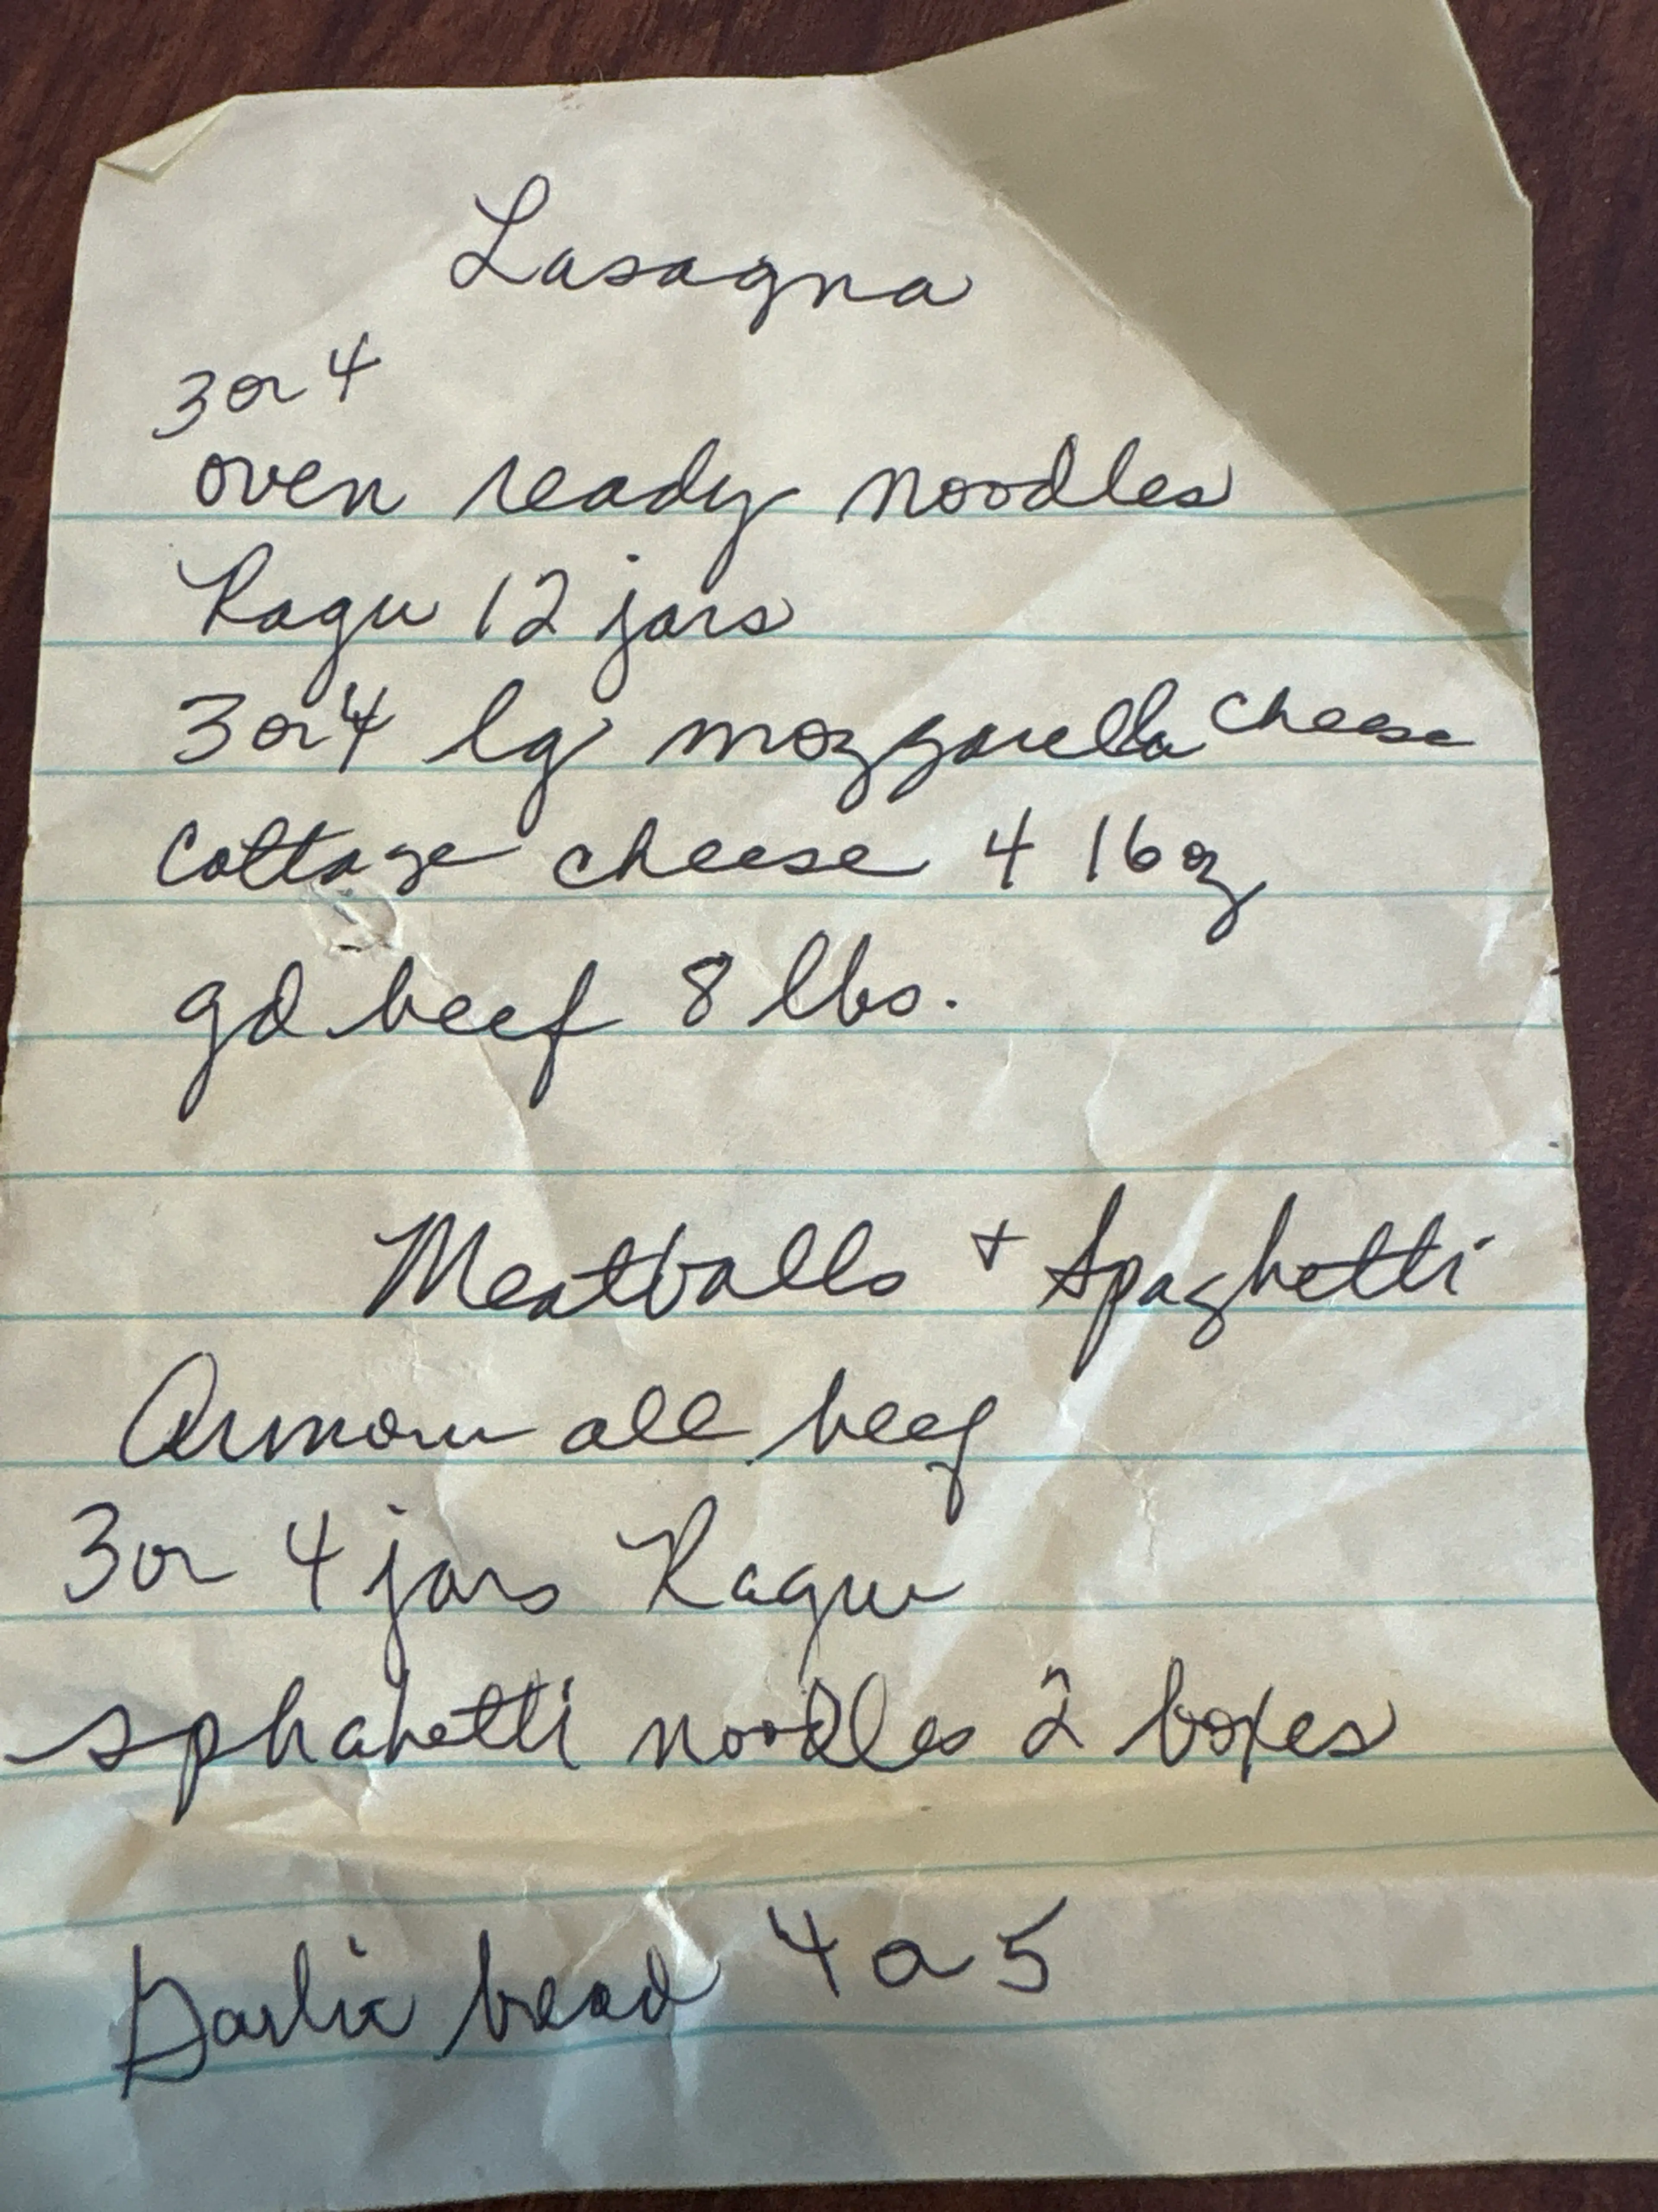 Lasagna
3 or 4
oven ready noodles
Ragu 12 jars
3 or 4 lg mozzarella cheese
Cottage cheese 4 16 oz
gd beef 8 lbs.
Meatballs + Spaghetti
Armour all beef
3 or 4 jars Ragu
sphahetti noodles 2 boxes
Garlic bread 4 or 5